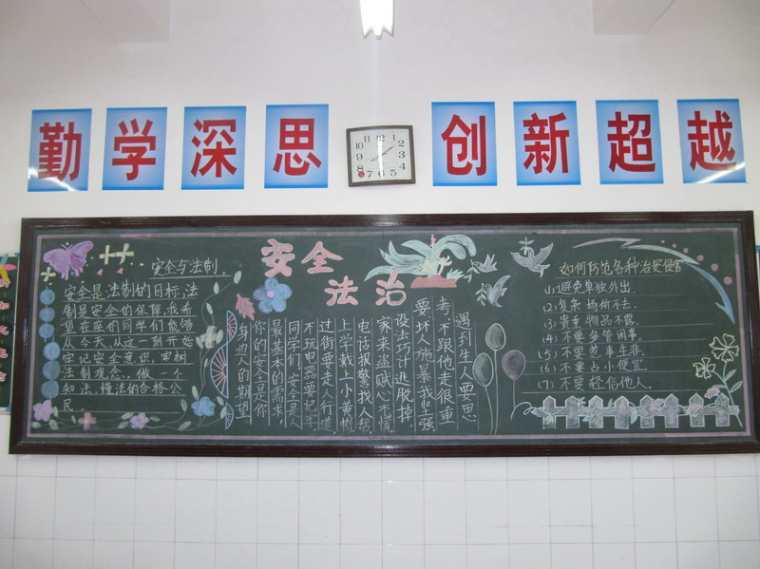 勤学深思 创新超越
安全与法制。
安全是法制的目标,法
制是安全的保障,我希
望在座的同学们能够
从今天,从这一刻开始
牢记安全意识,树
法制观念,做一个
知法、懂法的合格公
民.
安全
法治
遇到生人要思
考,不跟他走很重
要,坏人施暴我
设法巧计逃脱掉,
家来盗贼心不慌
电话报警找人帮
上学戴上小黄帽
过街要走人行道,
不玩电器要记牢
同学们,安全是人
最基本的需求,
你的安全是是你
身 人的期望
如何防范各种治安侵害
(1)避免单独外出.
(2)复杂场所不去.
(3)贵重物品不露.
(4)不要多管闲事.
(5)不要惹事生非.
(6)不要占小便宜.
(7)不要轻信他人.